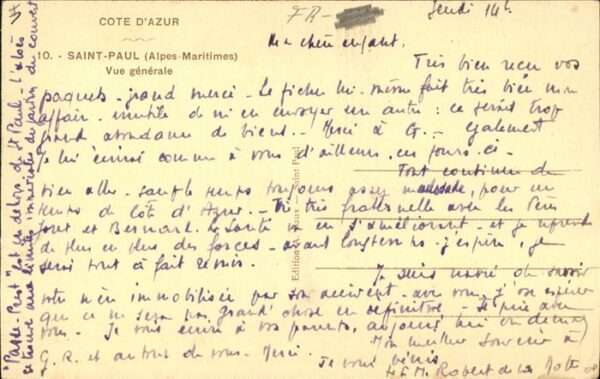 COTE D'AZUR
10. - SAINT-PAUL (Alpes-Maritimes)
Vue générale
FR-
Jeudi 14h.
Ma chère enfant.
Très bien reçu vos
paquets - grand merci - Le fichu lui-même fait très bien mon
affaire - inutile de m'en envoyer un autre : ce serait trop
grand abondance de biens - Merci à G. - Egalement
Je lui écrirai comme à vous d'ailleurs, ces jours-ci -
Tout continue de
bien aller - sauf le temps toujours assez maussade, pour un
temps de Côte d'Azur - Très fraternelle avec les Pères
et Bernard. La santé va en s'améliorant - et je reprends
de plus en plus des forces - avant longtemps, j'espère, je
serai tout à fait remis.
Je suis navré de savoir
votre mère immobilisée par son accident - avec vous, j'ose espérer
que ce ne sera pas grand'chose en définitive - Je prie avec
vous - Je vous écrirai à vos parents, aujourd'hui ou demain
Mon meilleur souvenir à
G. R. et autour de vous - Merci.
Je vous bénis.
fr M. Robert de la
Edition - Saint Paul
"Passe-Prest" est en dehors de St Paul - l'abbé
se trouve à la limite du jardin du couvent